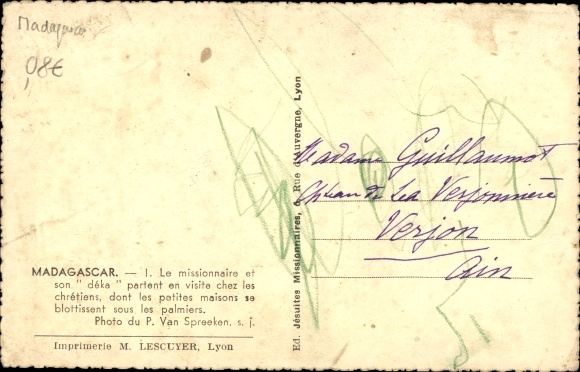 Madagascar
,08€
MADAGASCAR. — 1. Le missionnaire et
son " déka " partent en visite chez les
chrétiens, dont les petites maisons se
blottissent sous les palmiers.
Photo du P. Van Spreeken, s. j.
Imprimerie M. LESCUYER, Lyon
Ed. Jésuites Missionnaires, 6, Rue d'Auvergne, Lyon
Madame Guillaumot
de La Verjonnière
Verjon
Ain